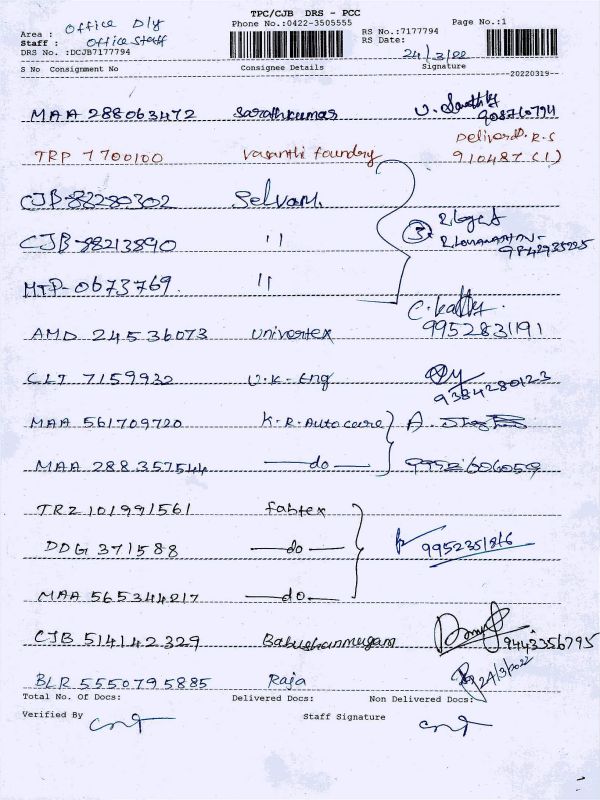 TPC/CJB DRS - PCC
Phone No.:0422-3505555 Page No.:1
Area : Office Dly
RS No.:7177794
Staff : Office Staff
RS Date: 24/3/22
DRS No. :DCJB7177794
S No Consignment No Consignee Details Signature
--20220319--
MAA 288063472 Sarathkumar 908760794
TRP 7700100 Vasanthi foundry Deliverd. R.S 910487 (1)
CJB-82280302 Selvam.
CJB-88213890 " 3
MTP-0673769. "
AMD 24536073 Univertex 9952831191
CLT 7159932 U.K-Eng 9384280123
MAA 561709720 K.R.Autocare A.
MAA 288357544 —do— 9952606059
TRZ 101991561 fabtex
DDG 371588 —do— 9952351816
MAA 565344217 —do—
CJB 514142329 Babushanmugam 9443356795
BLR 5550795885 Raja 24/3/2022
Total No. Of Docs: Delivered Docs: Non Delivered Docs:
Verified By Staff Signature